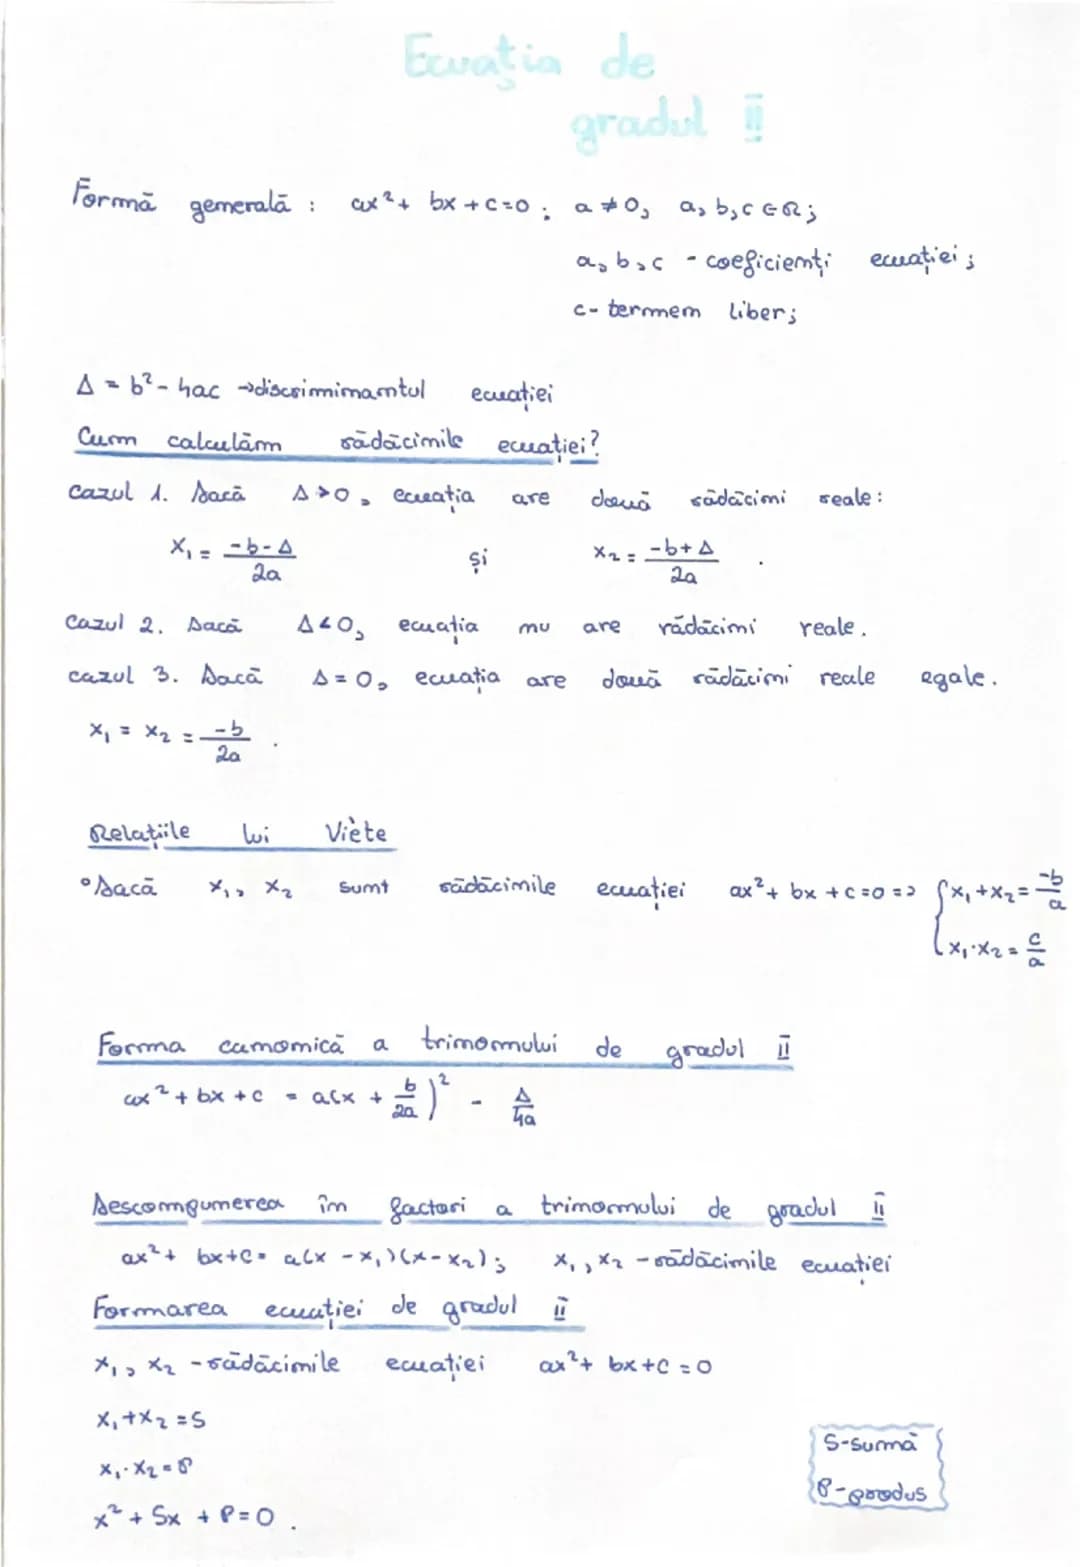 Ecuația de
gradul II
Formă generală : ax² + bx + c = 0 ; a ≠ 0, a, b, c ∈ R ;
a, b, c - coeficienți ecuației ;
c - termen liber ;
Δ = b² - 4ac → discriminantul ecuației
Cum calculăm rădăcinile ecuației?
Cazul 1. Dacă Δ > 0, ecuația are două rădăcini reale :
x₁ = (-b - Δ)/2a și x₂ = (-b + Δ)/2a .
Cazul 2. Dacă Δ < 0, ecuația nu are rădăcini reale .
cazul 3. Dacă Δ = 0, ecuația are două rădăcini reale egale .
x₁ = x₂ = -b/2a .
Relațiile lui Viète
° Dacă x₁, x₂ sunt rădăcinile ecuației ax² + bx + c = 0 => { x₁ + x₂ = -b/a
x₁ · x₂ = c/a
Forma canonică a trinomului de gradul II
ax² + bx + c = a(x + b/2a)² - Δ/4a
Descompunerea în factori a trinomului de gradul II
ax² + bx + c = a(x - x₁)(x - x₂) ; x₁, x₂ - rădăcinile ecuației
Formarea ecuației de gradul II
x₁, x₂ - rădăcinile ecuației ax² + bx + c = 0
x₁ + x₂ = S
x₁ · x₂ = P
x² + Sx + P = 0 .
S - sumă
P - produs